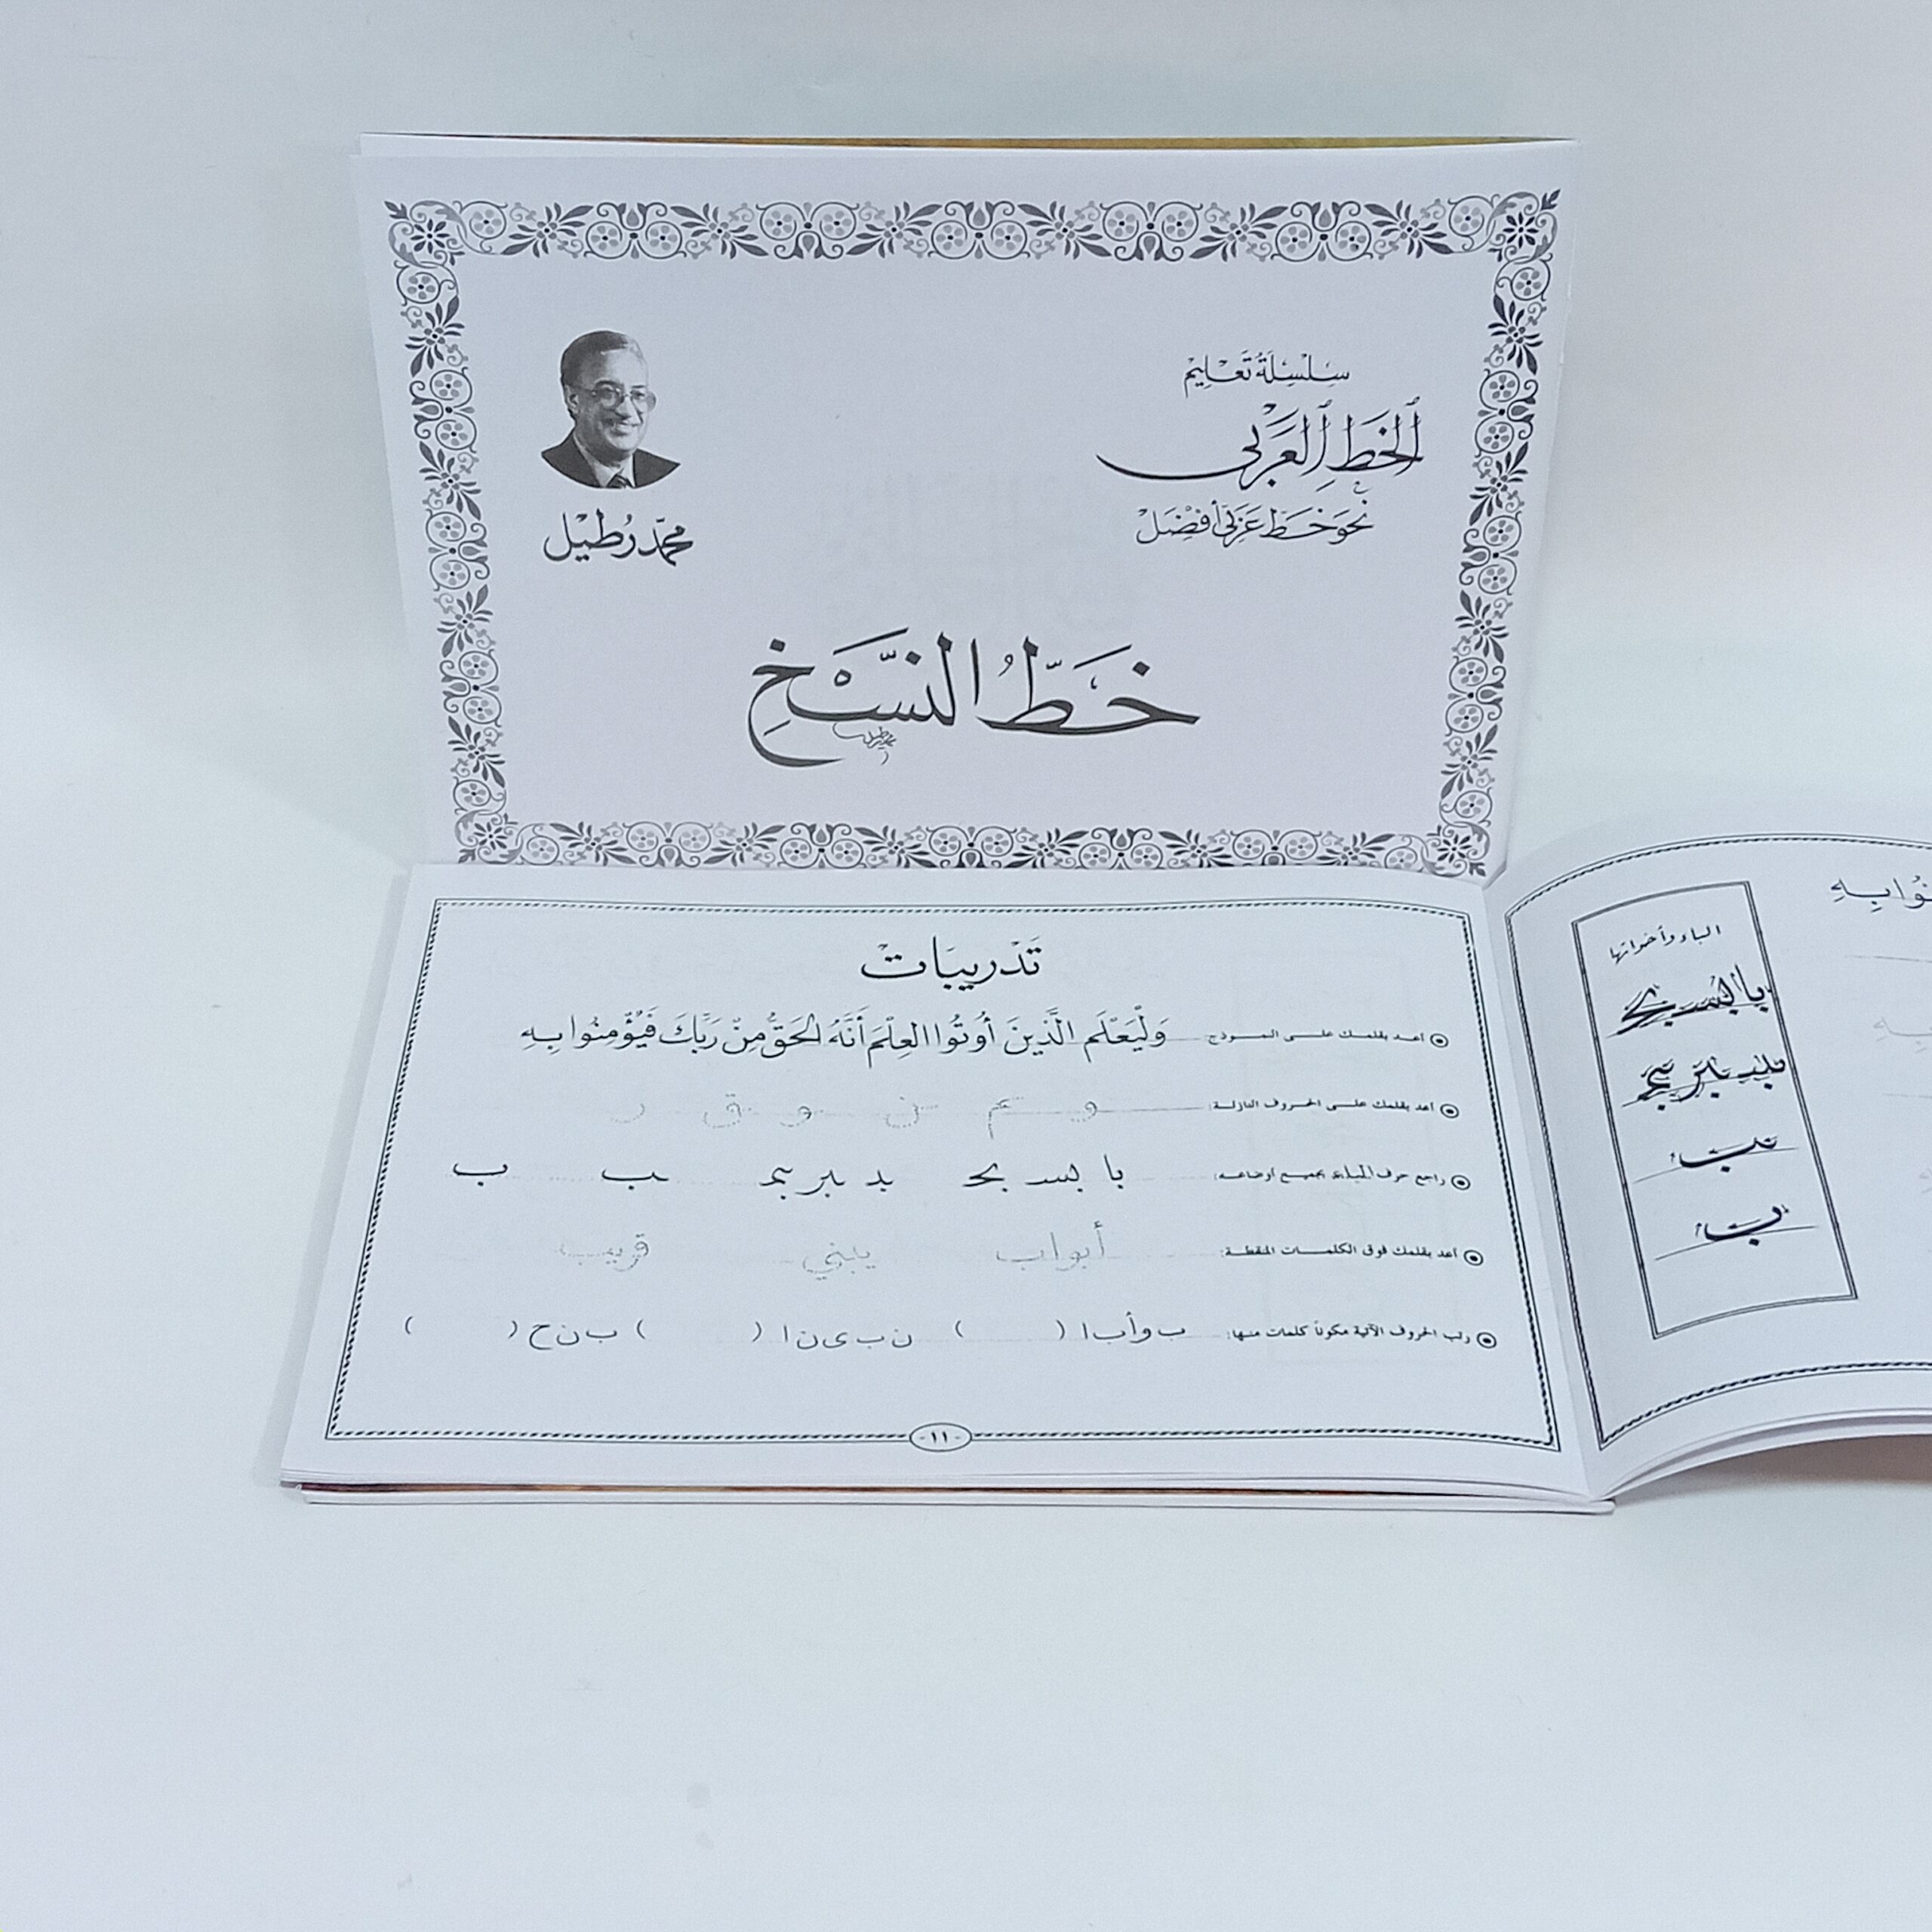 سِلْسِلَةُ تَعْلِيمْ
ٱلخَطِّ ٱلعَرَبي
نَحْوَ خَطٍّ عَرَبيٍّ أَفْضَلْ
محمّد رُطيْل
خَطُّ النَّسْخِ
تَدْرِيبَاتْ
أعد بقلمك على النموذج وَلْيَعْلَم الَّذِينَ أُوتُوا العِلْمَ أَنَّهُ الحَقُّ مِنْ رَبِّكَ فَيُؤْمِنُوا بِهِ
أعد بقلمك على الحروف النازلة: و م ن و ق ر
راجع حرف الباء بجميع أوضاعه: با بسـ بحـ بد بر بم ـب ب
أعد بقلمك فوق الكلمات المنقطة: أبواب يبني قريب
رتب الحروف الآتية مكوناً كلمات منها: ب و أ ب ا ( ) ن ب ى ن ا ( ) ب ن ح ( )
-١١-
نُوا بِهِ
الباء وأخواتها
با لبسـ بحـ
ـب
ب